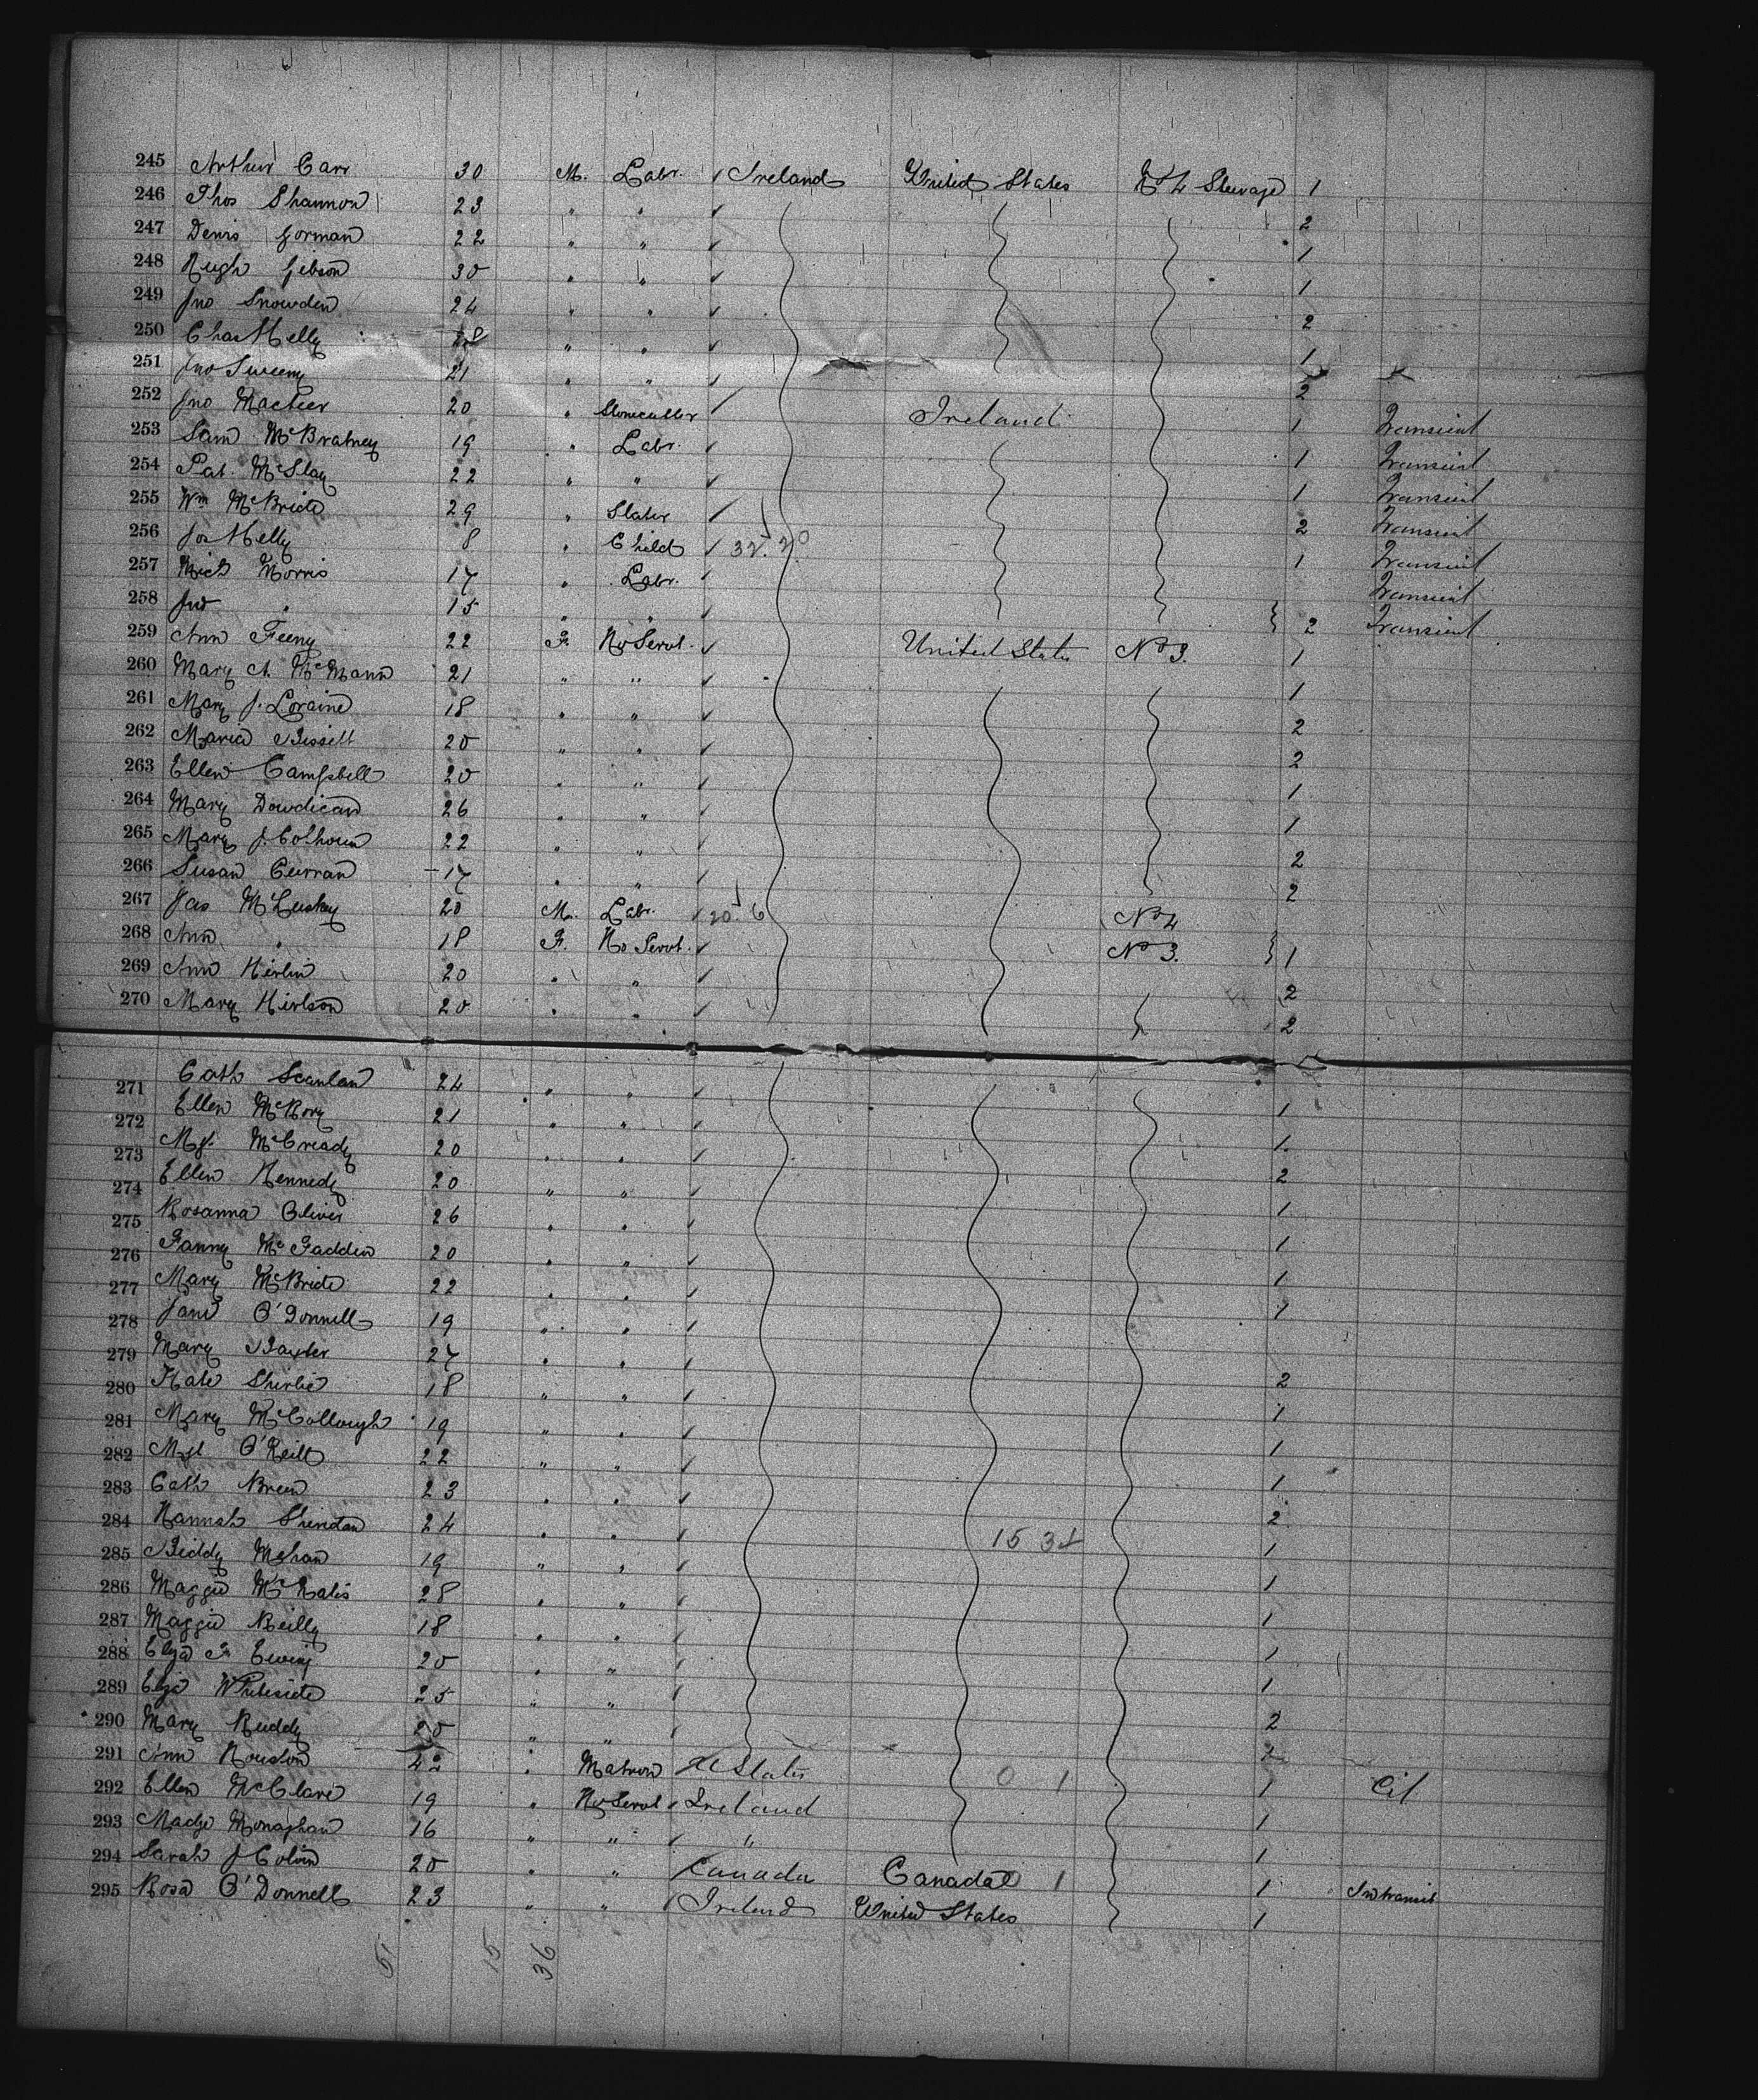 245 Arthur Carr 30 M. Labr. ✓ Ireland United States No 4 Steerage 1
246 Thos Shannon 23 " " ✓ 2
247 Denis Gorman 22 " " ✓ 1
248 Hugh Gibson 30 " " ✓ 1
249 Jno Snowden 24 " " ✓ 2
250 Chas Kelly 28 " " ✓ 1
251 Jno Sweeny 21 " " ✓ 2
252 Jno Macteer 20 " Stonecutter / Ireland 1 Transient
253 Sam McBratney 19 " Labr. ✓ 1 Transient
254 Pat. McSlay 22 " " ✓ 1 Transient
255 Wm McBride 29 " Slater / 2 Transient
256 Jos Kelly 8 " Child ✓ 32. 20 1 Transient
257 Mich Morris 17 " Labr. ✓ Transient
258 Jno " 15 " " ✓ } 2 Transient
259 Ann Feeny 22 F. Ho Servt. ✓ United States No 3. 1
260 Mary A. McMann 21 " " ✓ 1
261 Mary J. Loraine 18 " " ✓ 2
262 Maria Bissett 20 " " ✓ 2
263 Ellen Campbell 20 " " ✓ 1
264 Mary Dowdican 26 " " ✓ 1
265 Mary J. Colhoun 22 " " ✓ 2
266 Susan Curran 17 " " ✓ 2
267 Jas McLuskey 20 M. Labr. ✓ 20. 6 No 4
268 Ann " 18 F. Ho Servt. ✓ No 3. } 1
269 Ann Hirlin 20 " " ✓ 2
270 Mary Hirlson 20 " " ✓ 2
271 Cath Scanlan 24 " " ✓ 1
272 Ellen McRory 21 " " ✓ 1.
273 Mgt. McCready 20 " " ✓ 2
274 Ellen Kennedy 20 " " ✓ 1
275 Rosanna Oliver 26 " " ✓ 1
276 Fanny McFadden 20 " " ✓ 1
277 Mary McBride 22 " " ✓ 1
278 Jane O'Donnell 19 " " ✓
279 Mary Baxter 27 " " 2
280 Kate Shirlie 18 " " ✓ 1
281 Mary McCollough 19 " " ✓ 1
282 Mgt O'Neill 22 " " ✓ 1
283 Cath Breen 23 " " ✓ 2
284 Hannah Sheridan 24 " " ✓ 15 34 1
285 Biddy Mehan 19 " " ✓ 1
286 Maggie McHales 28 " " ✓ 1
287 Maggie Reilly 18 " " ✓ 1
288 Eliza F. Ewing 20 " " ✓ 1
289 Eliza Whiteside 25 " " ✓ 2
290 Mary Ruddy 20 " " ✓ 1
291 Ann Houston 42 " Matron U States 0 1 1 Cit
292 Ellen McClare 19 " Ho Servt ✓ Ireland 1
293 Madge Monaghan 16 " " ✓ " 1
294 Sarah J Colvin 20 " " Canada Canada 0 1 1 In transit
295 Rosa O'Donnell 23 " " / Ireland United States 1
51 15 36